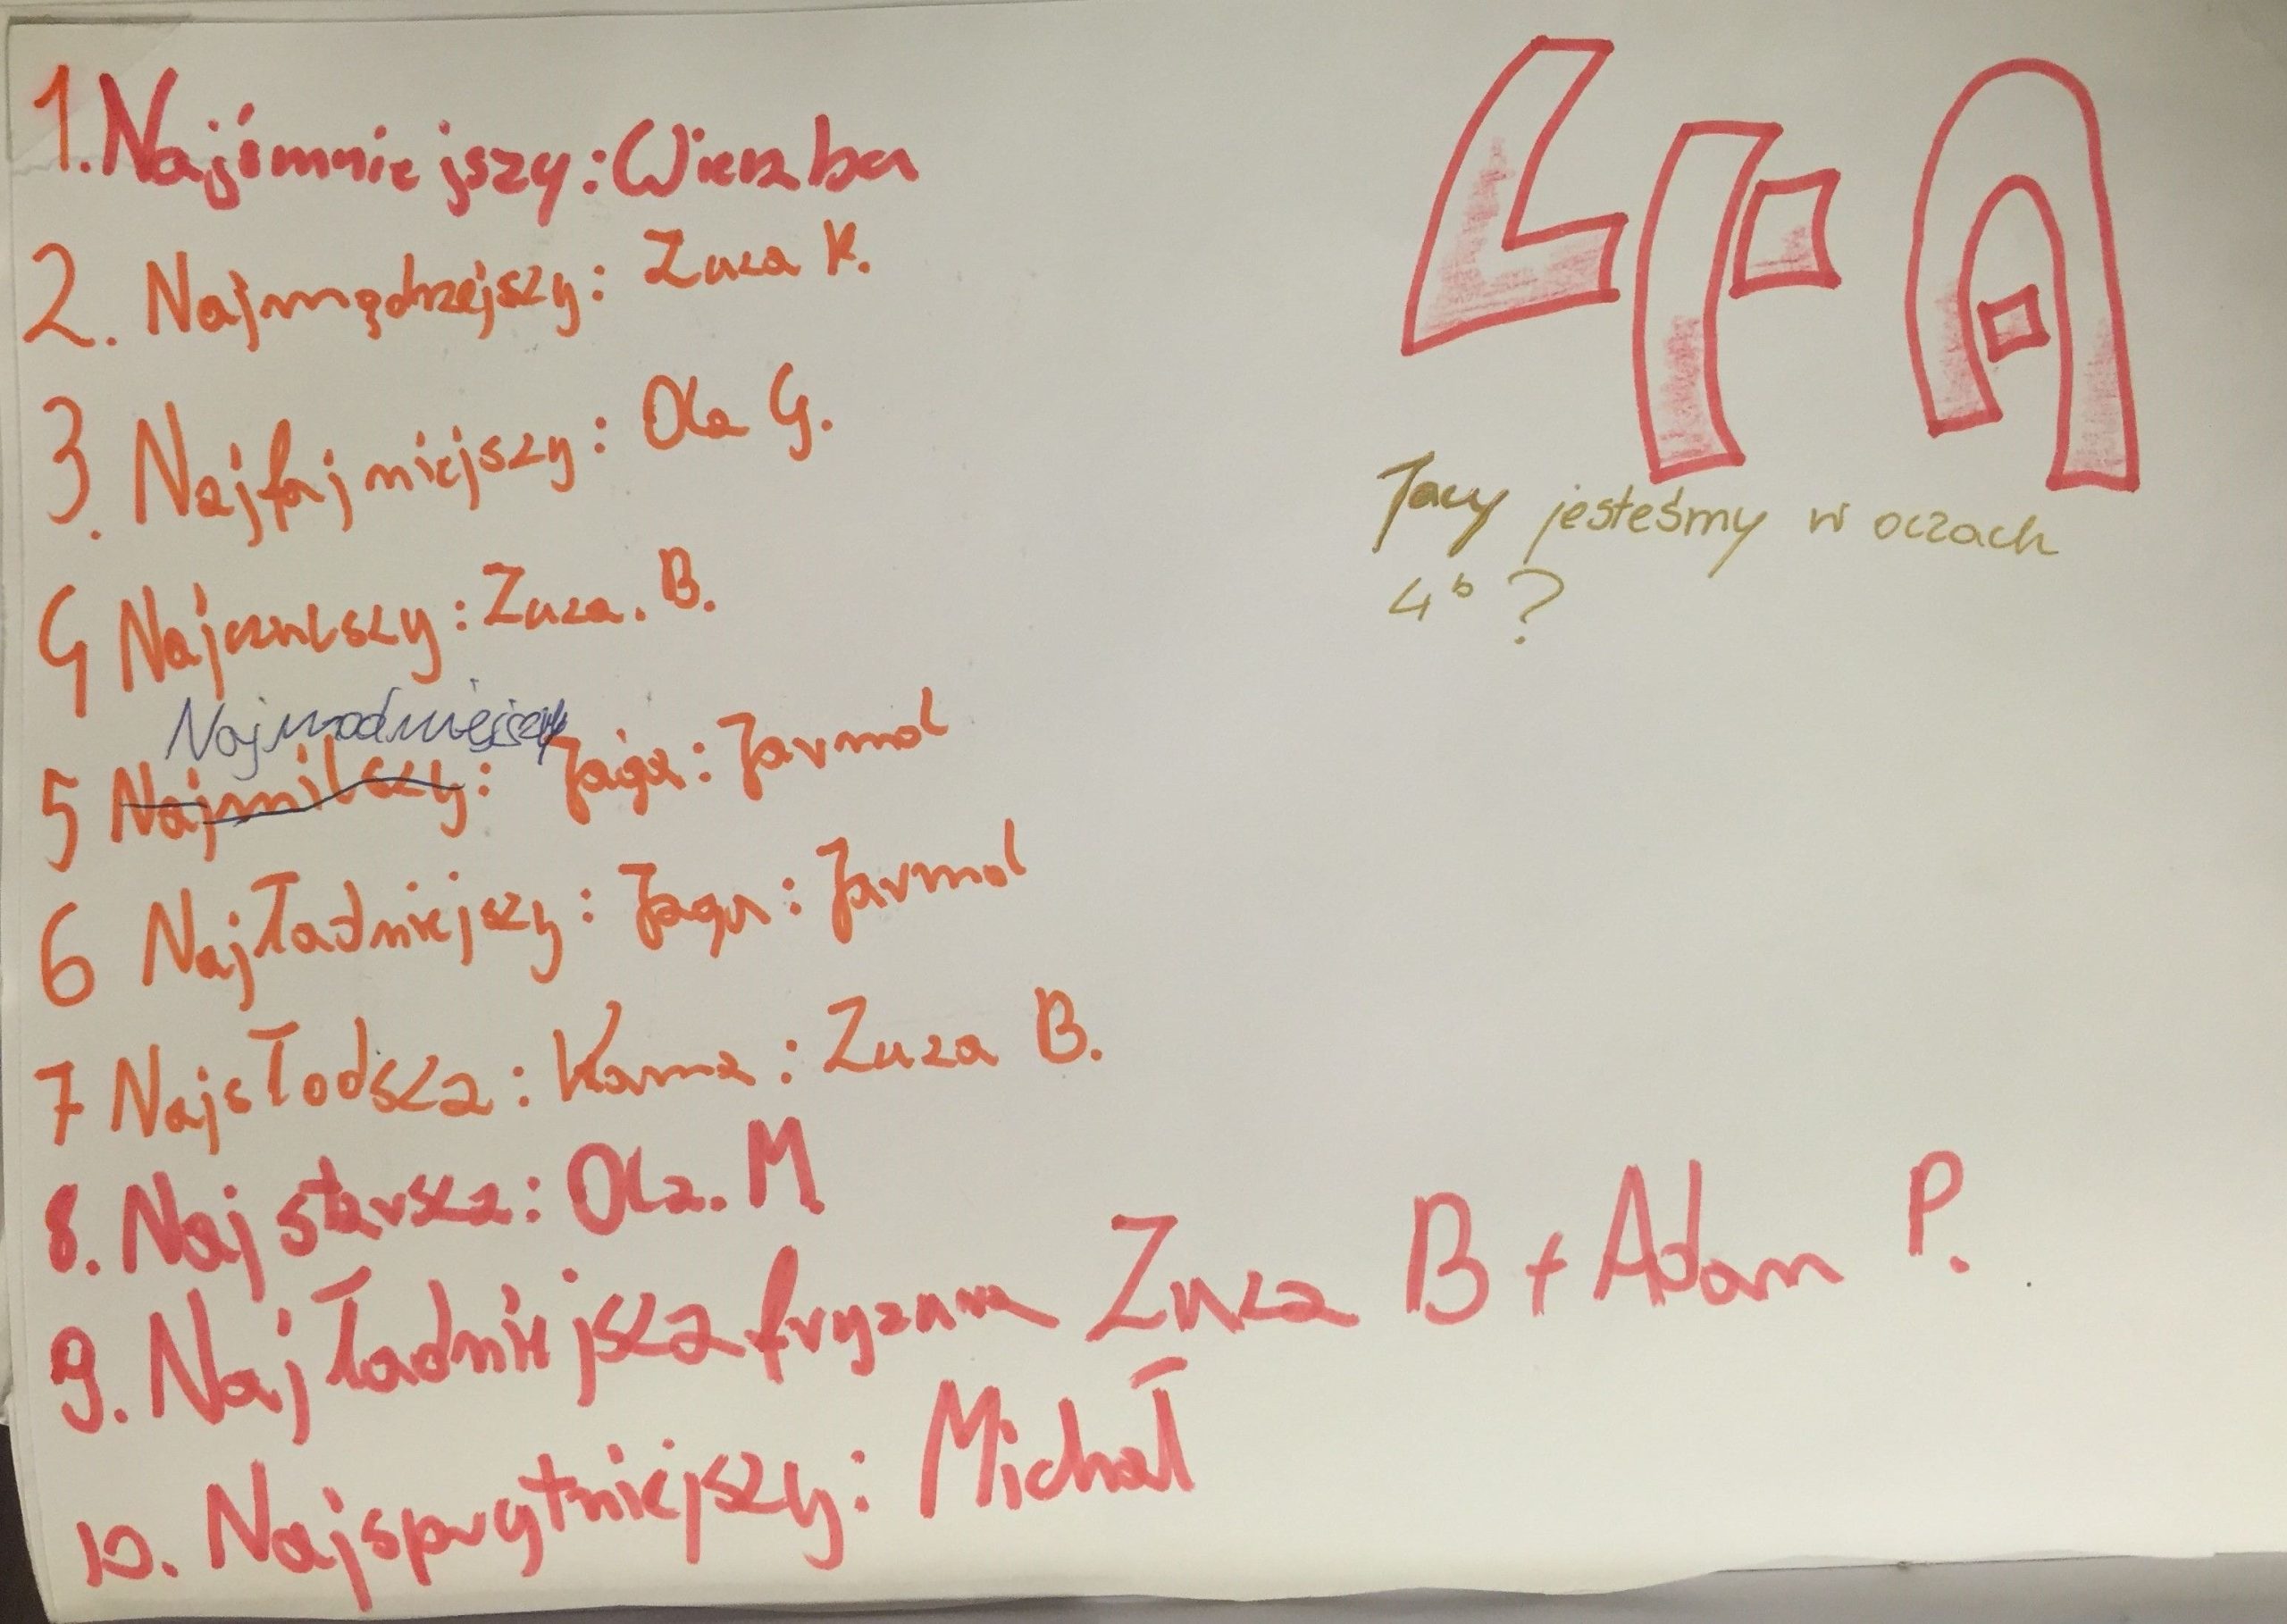 1. Najśmniejszy: Wierzba
2. Najmądrzejszy: Zuza K.
3. Najfajniejszy: Ola G.
4 Najczulszy: Zuza. B.
Najmodniejszy
5 Najmilszy: Jaga: Jarmol
6 Najładniejszy: Jaga: Jarmol
7 Najsłodsza: Kama: Zuza B.
8. Najstarsza: Ola. M
9. Najładniejsza fryzura Zuza B + Adam P.
10. Najsprytniejszy: Michał
4A
Jacy jesteśmy w oczach
4b ?